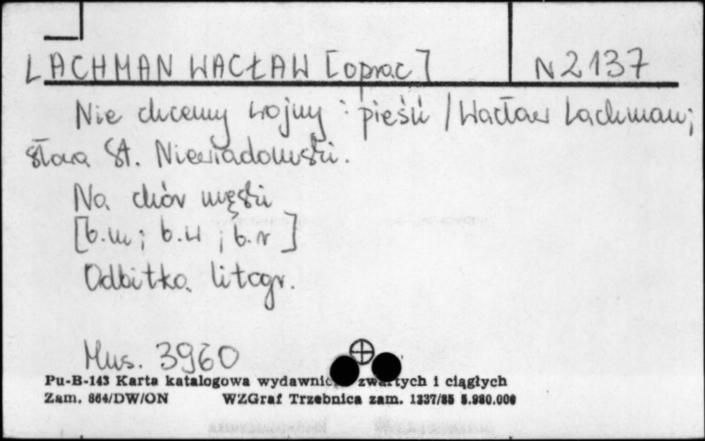 LACHMAN WACŁAW [oprac] N 2137
Nie chcemy wojny : pieśń / Wacław Lachman;
słowa St. Niewiadomski.
Na chór męski
[b.m; b.w; b.r]
Odbitka litogr.
Mus. 3960
Pu-B-143 Karta katalogowa wydawnic zwartych i ciągłych
Zam. 864/DW/ON WZGraf Trzebnica zam. 1237/85 5.980.000